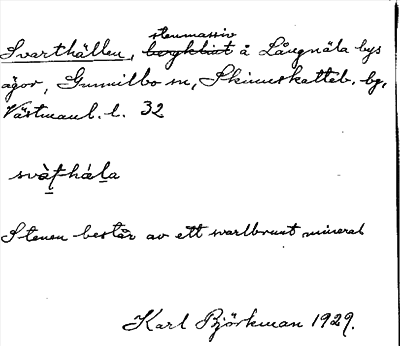 stenmassiv
Svarthällen, bergknat å Långnäla bys
ägor, Gunnilbo sn, Skinnskatteb. bg,
Västmanl. l. 32
svàṯhálla
Stenen består av ett svartbrunt mineral
Karl Björkman 1929.